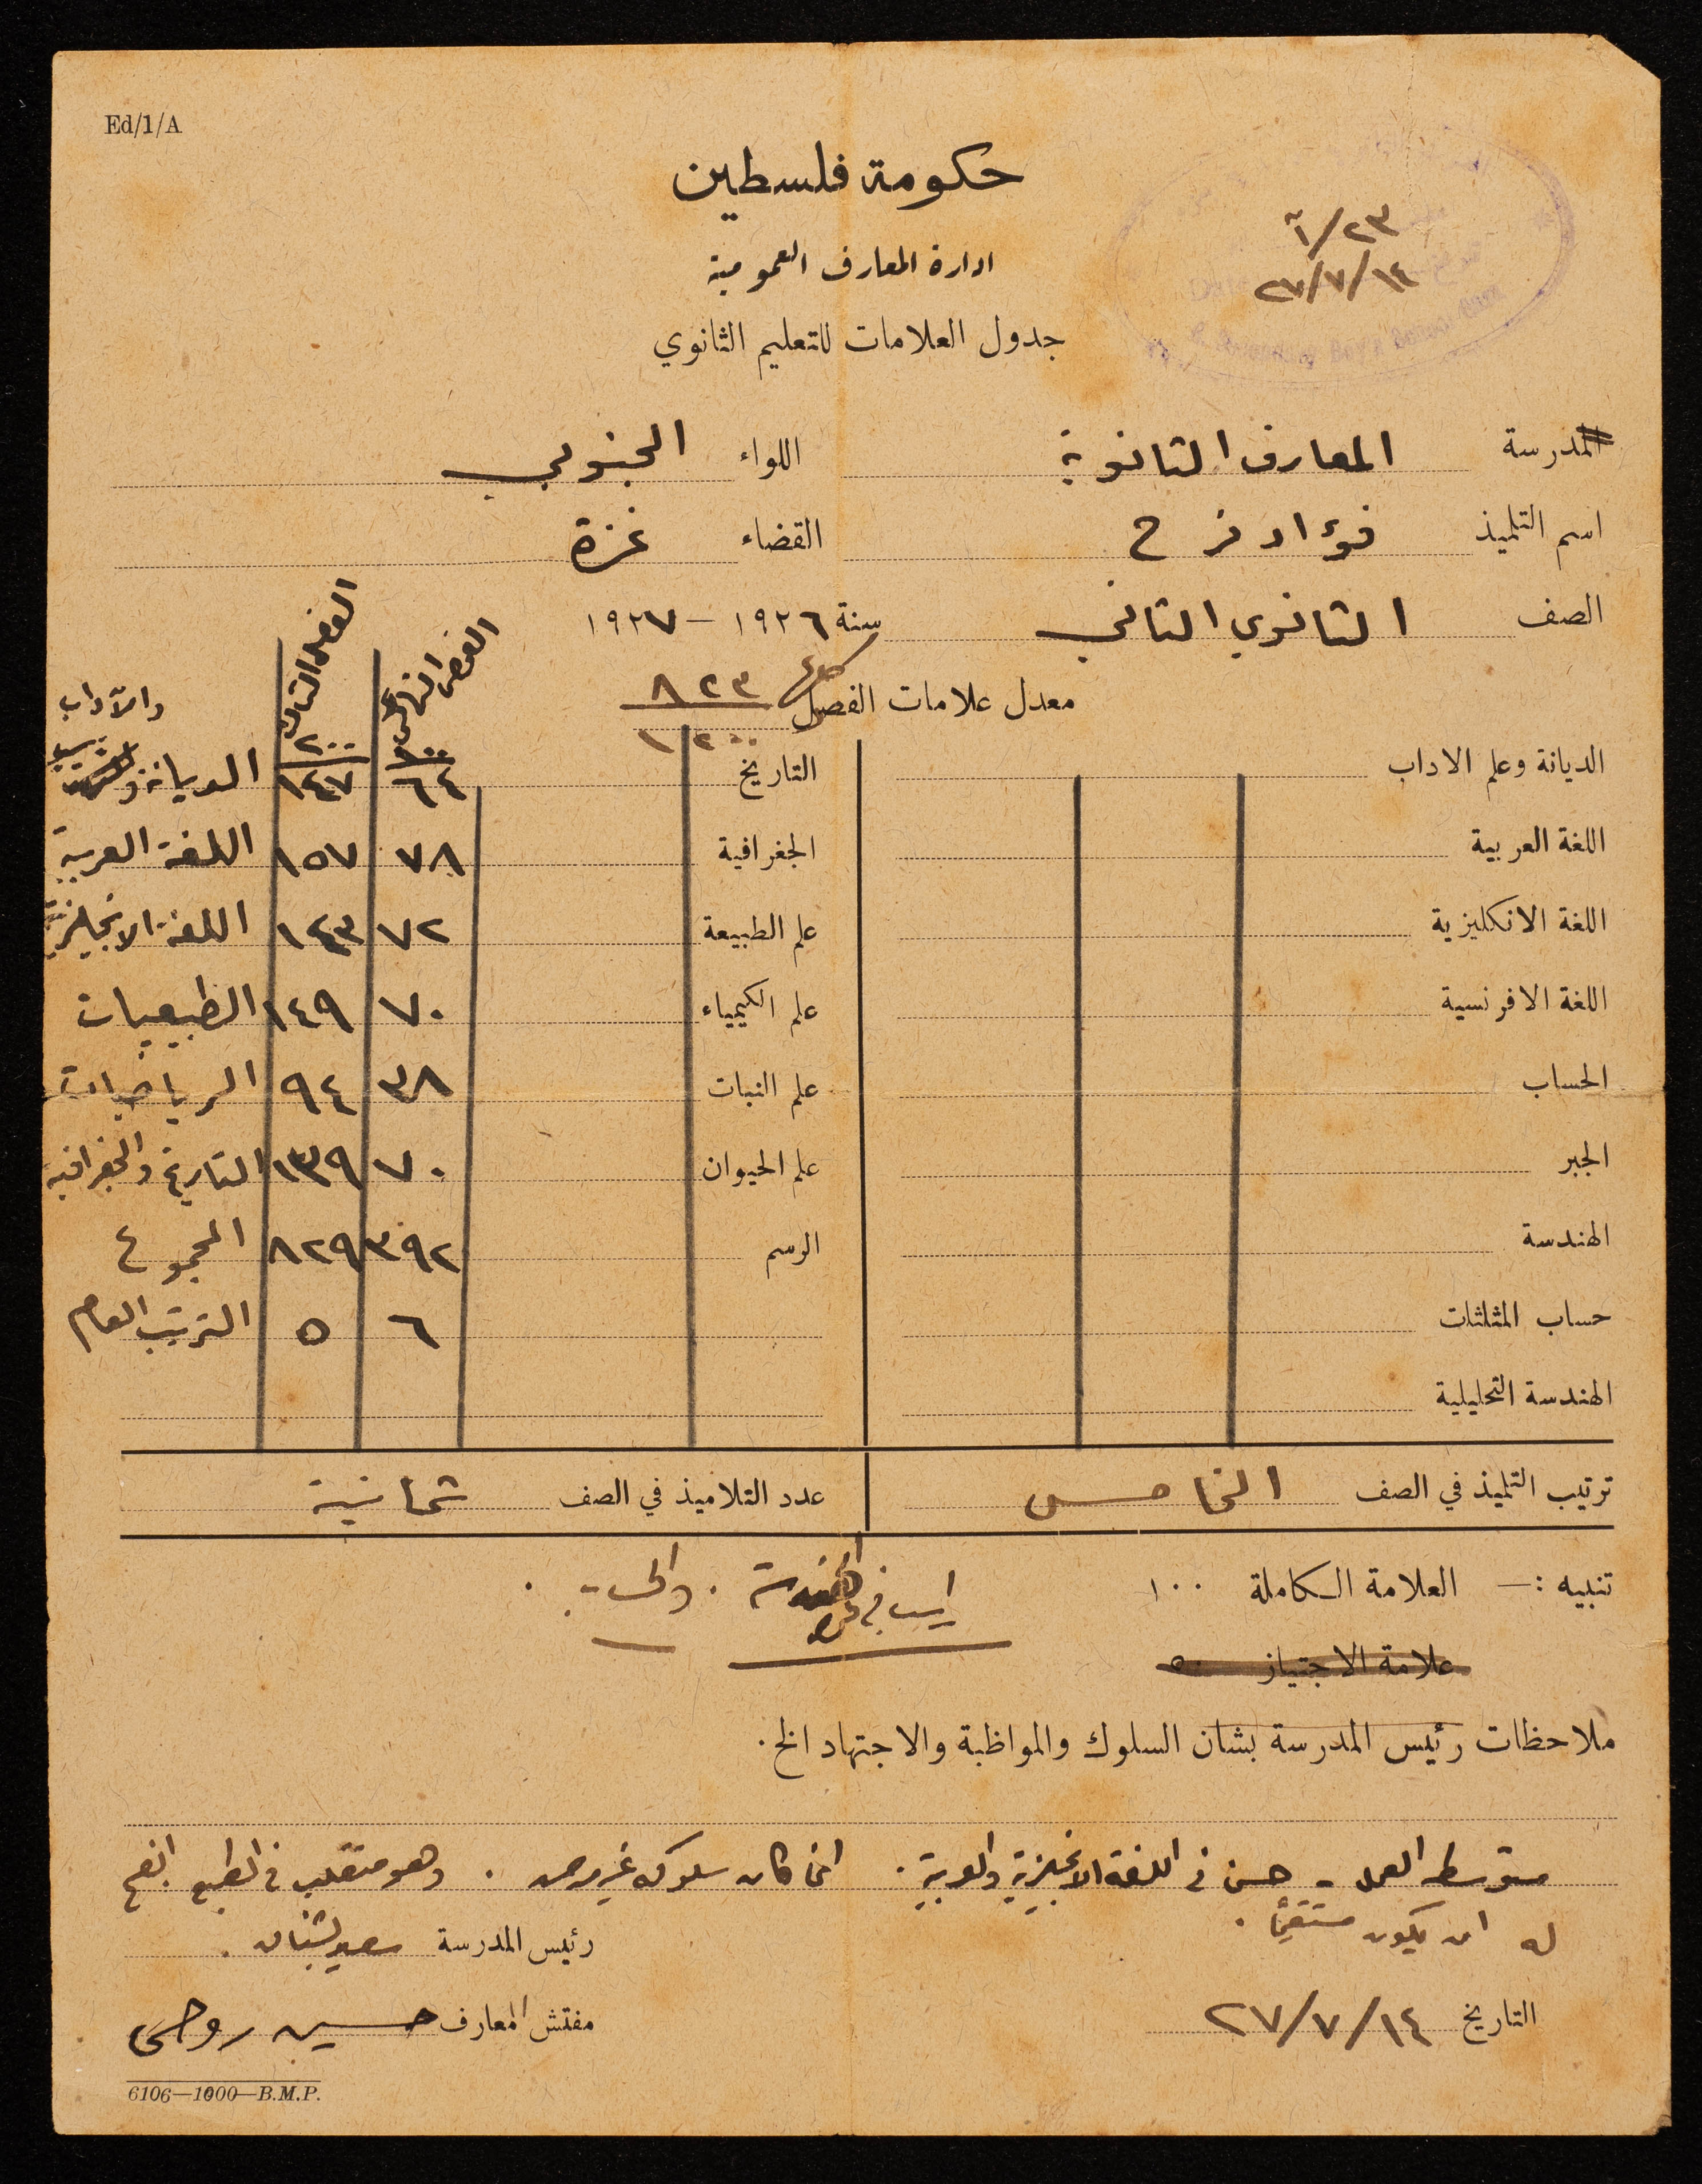 Ed/1/A
حكومة فلسطين
ادارة المعارف العمومية
جدول العلامات للتعليم الثانوي
٢٣/آ
١٤/٧/٢٧
المدرسة المعارف الثانوية اللواء الجنوبي
اسم التلميذ فؤاد فرح القضاء غزة
الصف الثانوي الثاني سنة ١٩٢٦ – ١٩٢٧
معدل علامات الفصل ٨٢٣
١٢٠٠
الفصل الثاني
٢٠٠
١٠٠
والآداب
الديانة وعلم الاداب التاريخ ٦٤ ١٤٧ الديانة
اللغة العربية الجغرافية ٧٨ ١٥٧ اللغة العربية
اللغة الانكليزية علم الطبيعة ٧٢ ١٤٣ اللغة الانجليزية
اللغة الافرنسية علم الكيمياء ٧٠ ١٤٩ الطبيعيات
الحساب علم النبات ٣٨ ٩٤ الرياضيات
الجبر علم الحيوان ٧٠ ١٣٩ التاريخ والجغرافية
الهندسة الرسم ٣٩٢ ٨٢٩ المجموع
حساب المثلثات ٦ ٥ الترتيب العام
الهندسة التحليلية
ترتيب التلميذ في الصف الخامس عدد التلاميذ في الصف ثمانية
تنبيه :— العلامة الكاملة ١٠٠
علامة الاجتياز ٥٠
ملاحظات رئيس المدرسة بشان السلوك والمواظبة والاجتهاد الخ.
متوسط العمل - حسن في اللغة الانجليزية والعربية . انما كان سلوكه غير مرض . وهو متقلب في الطبع انصح
له ان يكون مستقيما .
رئيس المدرسة سعيد
التاريخ ١٤/٧/٢٧
مفتش المعارف حسين روحي
6106—1000—B.M.P.